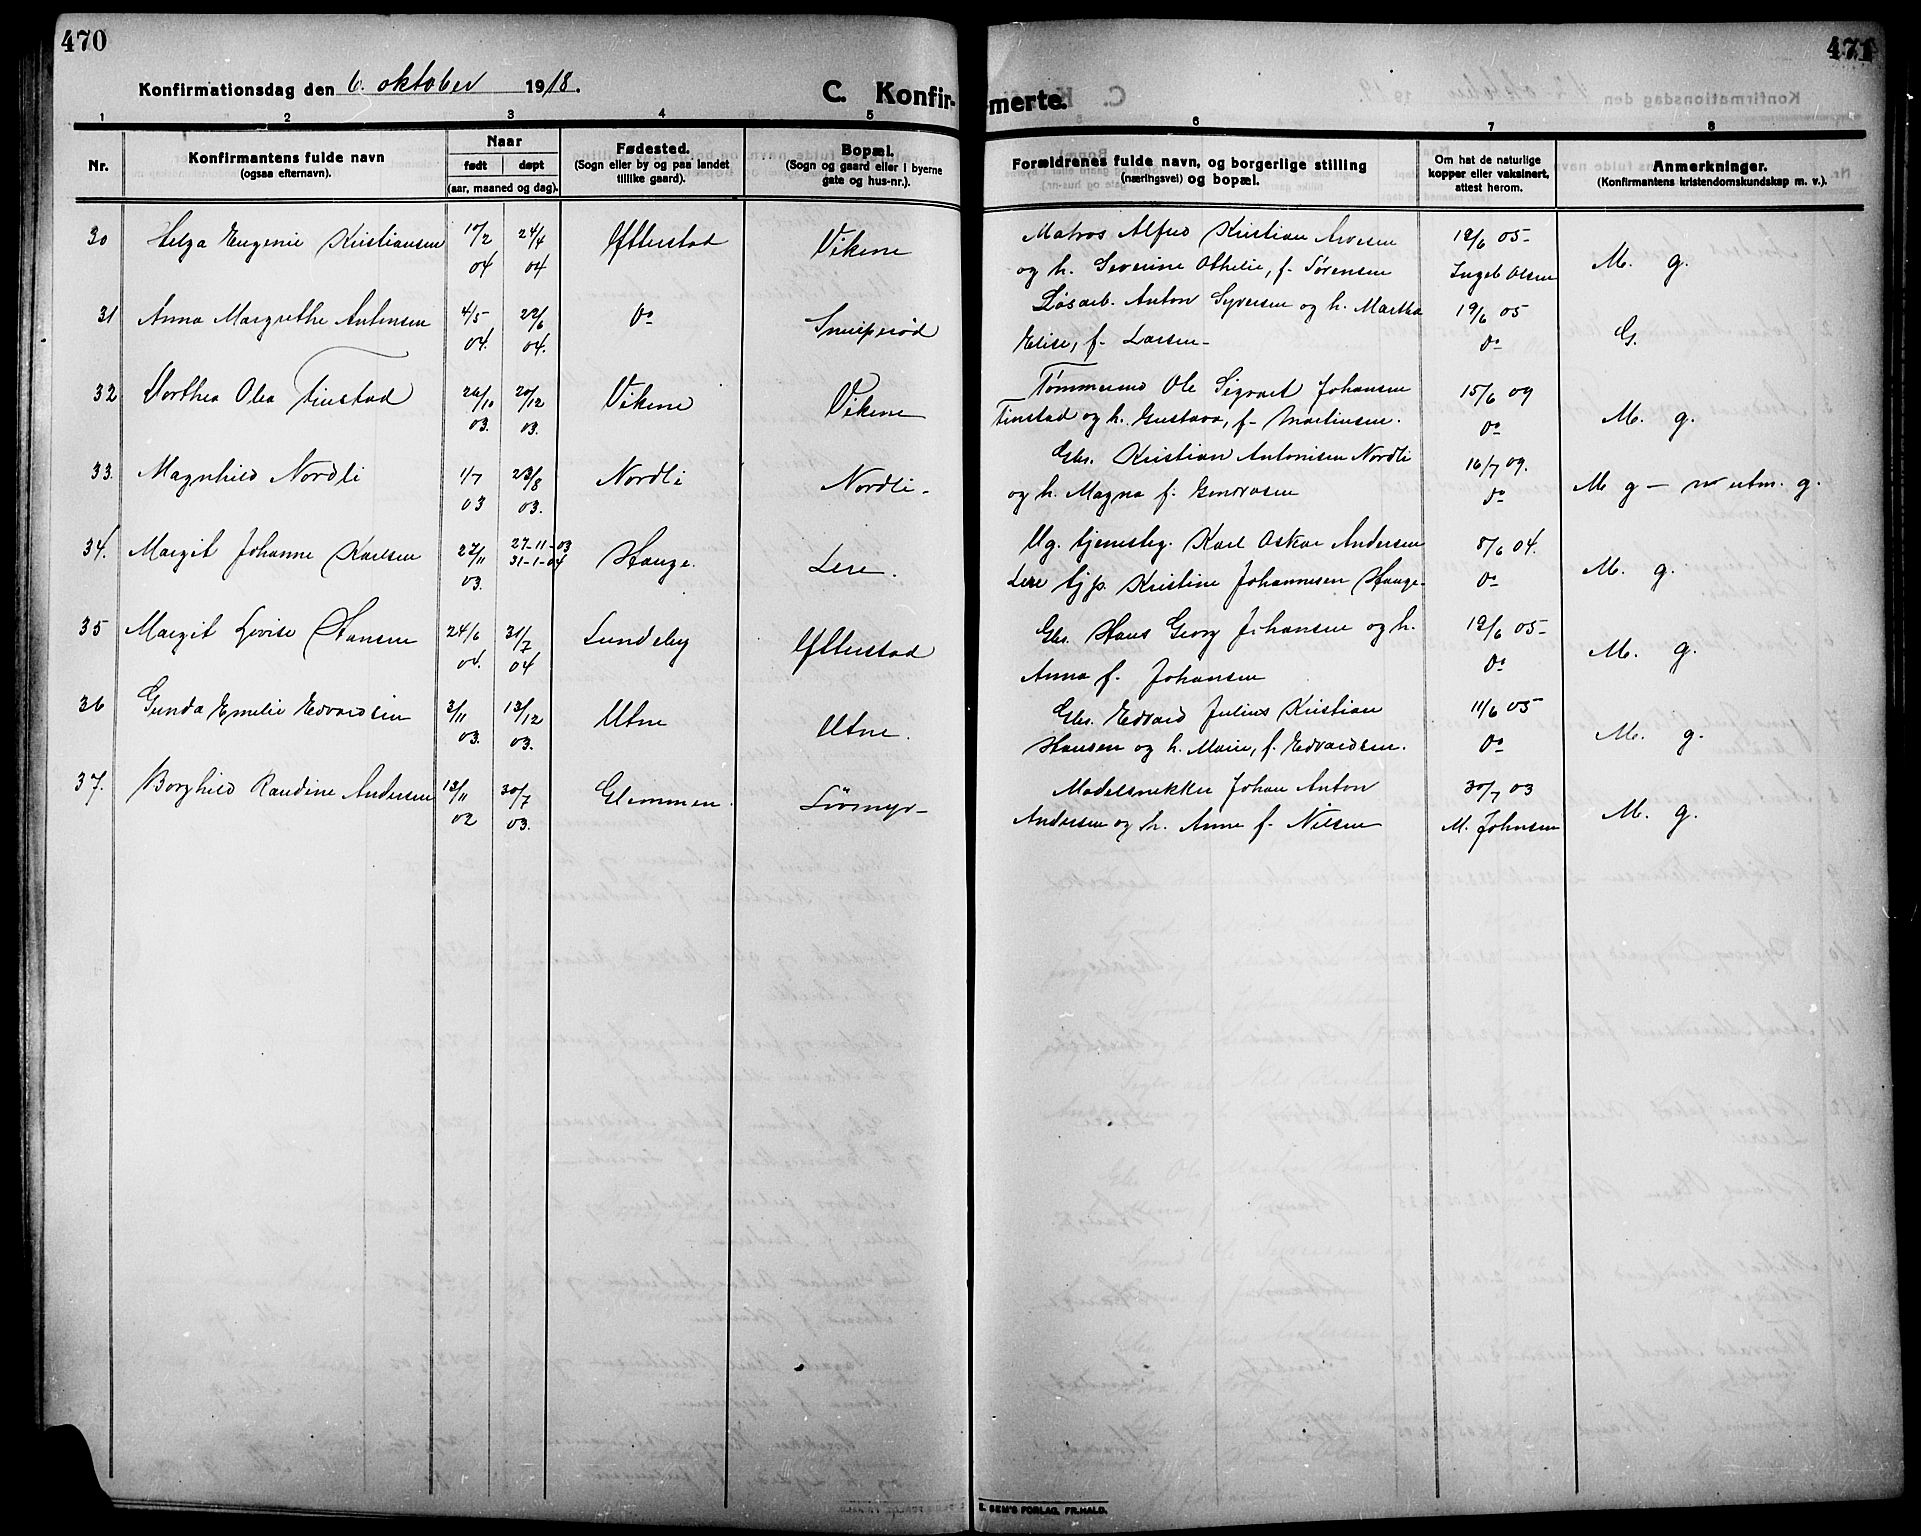 470
471
Konfirmationsdag den 6. oktober 1918.
C. Konfir-
merte.
1 2 3 4 5 6 7 8
Nr.
Konfirmantens fulde navn
(ogsaa efternavn).
Naar
født døpt
(aar, maaned og dag).
Fødested.
(Sogn eller by og paa landet
tillike gaard).
Bopæl.
(Sogn og gaard eller i byerne
gate og hus-nr.).
Forældrenes fulde navn, og borgerlige stilling
(næringsvei) og bopæl.
Om hat de naturlige
kopper eller vaksinert,
attest herom.
Anmerkninger.
(Konfirmantens kristendomskundskap m. v.).
30 Helga Eugenie Kristiansen 10/2 24/4 Ytterstad Vikene Matros Alfred Kristian Arvesen 12/6 05-
04 04 og h. Severine Othelie, f. Sørensen Ingeb Olsen M. g.
31 Anna Margrethe Antonsen 4/5 22/6 Do Løsarb. Anton Syversen og h. Martha 19/6 05
04. 04. Elise, f. Larsen- Do G.
32 Dorthea Olea Tinstad 20/12 Vikene Vikene Tømmermd Ole Sigvart Johansen 15/6 09
03. 03. Tinstad og h. Gustava, f. Martinsen. Do M. g.
33. Magnhild Nordli 1/7 23/8 Nordli Nordli- Gbr. Kristian Antonisen Nordli 16/7 09.
03 03. og h. Magna f. Do M g -
34. Margit Johanne Karlsen 27/11 27-11-03 Hauge. Lere. Ug. tjenestg. Karl Oskar Andersen 8/6 04.
03. 31-1-04 Lere tjp. Kristine Johannesen Hauge- Do M. g.
35 Margit Lovise Hansen 24/6 31/7 Lundeby Ytterstad Gbr. Hans Georg Johansen og h. 12/6 05-
04. 04 Anna f. Johansen Do M. g.
36 Gunda Emelie Edvardsen 3/11 13/12 Utne Utne. Gbr. Edvard Julius Kristian 11/6 05
03. 03. Hansen og h. Marie, f. Edvardsen. Do M. g.
37. Borghild Randine Andersen 13/11 30/7 Glemmen. Modelsnekker Johan Anton 30/7 03
02 03. Andersen og h. Anne f. Nilsen M. Johnsen M. g.
E. SEM'S FORLAG, FR.HALD.